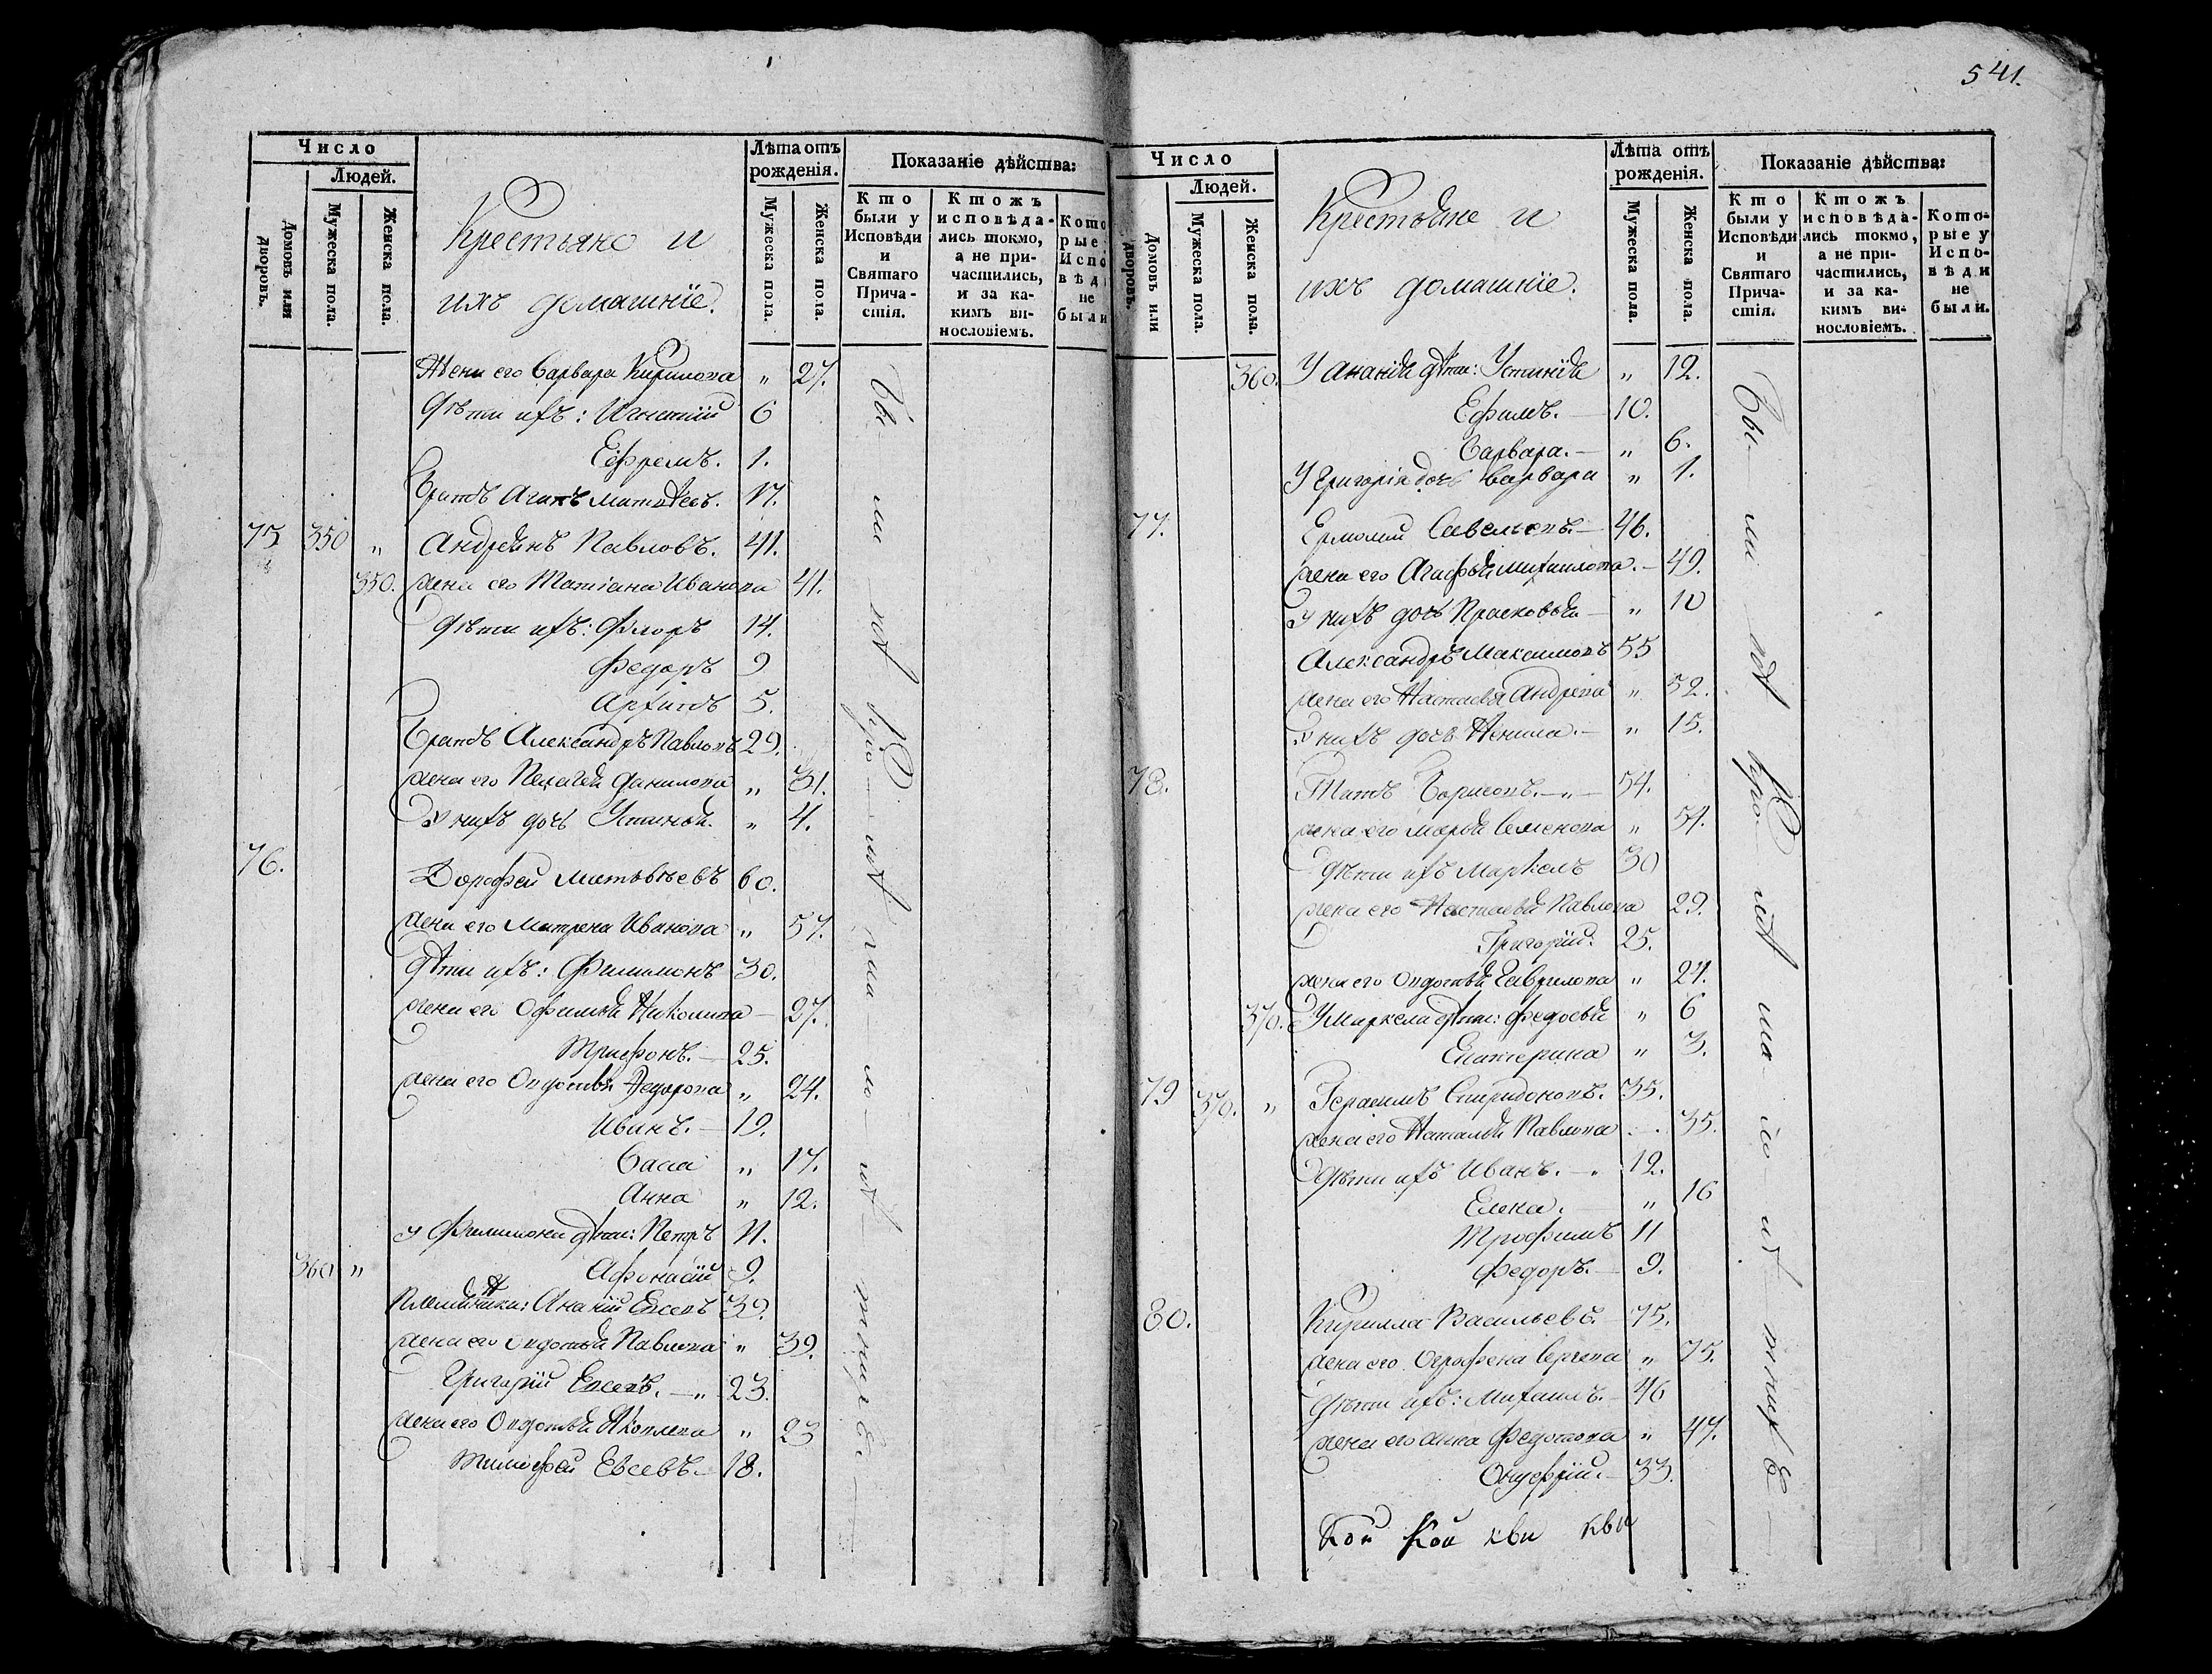 541.
Число
Людей.
Домовъ или дворовъ.
Мужеска пола.
Женска пола.
Крестьяне и
ихъ домашніе.
Лѣта отъ рожденія.
Мужеска пола.
Женска пола.
Показаніе дѣйства:
Кто были у Исповѣди и Святаго Причастія.
Ктожъ исповѣдались токмо, а не причастились, и за какимъ винословіемъ.
Которые у Исповѣди не были
Жена его Варвара Кирилова " 27.
Дѣти ихъ: Игнатій 6
Ефремъ. 1.
Братъ Агапъ Матвѣевъ. 17.
75 350 " Андреянъ Павловъ. 41.
350. жена его Татіана Иванова 41.
Дѣти ихъ: Флоръ 14.
Федоръ 9
Архипъ 5.
Братъ Александръ Павловъ 29.
жена его Пелагея Данилова " 31.
У нихъ дочь Устинья. " 4.
76. Дорофей Матвѣевъ 60.
жена его Матрена Иванова " 57.
Дѣти ихъ: Филимонъ 30.
жена его Офимья Николаева — 27.
Трифонъ. — 25.
жена его Овдотья Федорова " 24.
Иванъ. — 19.
Васса " 17.
Анна " 12.
У Филимона дѣти: Петръ 11.
360 " Афонасій 9.
Племянники: Ананій Евсевъ 39.
жена его Овдотья Павлова " 39.
Григорій Евсевъ. — " 23.
жена его Овдотья Яковлева " 23
Тимофей Евсевъ. — 18.
Число
Людей.
Домовъ или дворовъ.
Мужеска пола.
Женска пола.
Крестьяне и
ихъ домашніе.
Лѣта отъ рожденія.
Мужеска пола.
Женска пола.
Показаніе дѣйства:
Кто были у Исповѣди и Святаго Причастія.
Ктожъ исповѣдались токмо, а не причастились, и за какимъ винословіемъ.
Которые у Исповѣди не были.
360. У Ананія дѣти: Устинія " 12.
Ефимъ. — 10.
Варвара. — " 6.
У Григорія дочь Варвара " 1.
77. Ермолай Савельевъ. — 46.
жена его Агафья Михаилова. — 49.
У нихъ дочь Прасковья — " 10
Александръ Максимовъ 55
жена его Настасья Андреева " 52.
У нихъ дочь Ненила. — " 15.
78. Титъ Борисовъ. — " — 54.
жена его Марья Семенова " 51.
Дѣти ихъ Маркелъ 30
жена его Настасья Павлова 29.
Григорій. 25.
жена его Овдотья Гаврилова " 24.
370. У Маркела дѣти: Федосья " 6
Екатерина " 3.
79 370. " Герасимъ Спиридоновъ. 35.
жена его Наталья Павлова 35.
Дѣти ихъ Иванъ. — " 12.
Елена. " 16
Трофимъ 11
Федоръ. — 9.
80. Кирилла Васильевъ. — 75.
жена его Огрофена Сергева " 75.
Дѣти ихъ: Михаилъ. — 46
жена его Анна Федотова " 47.
Онуфрій. — 33.